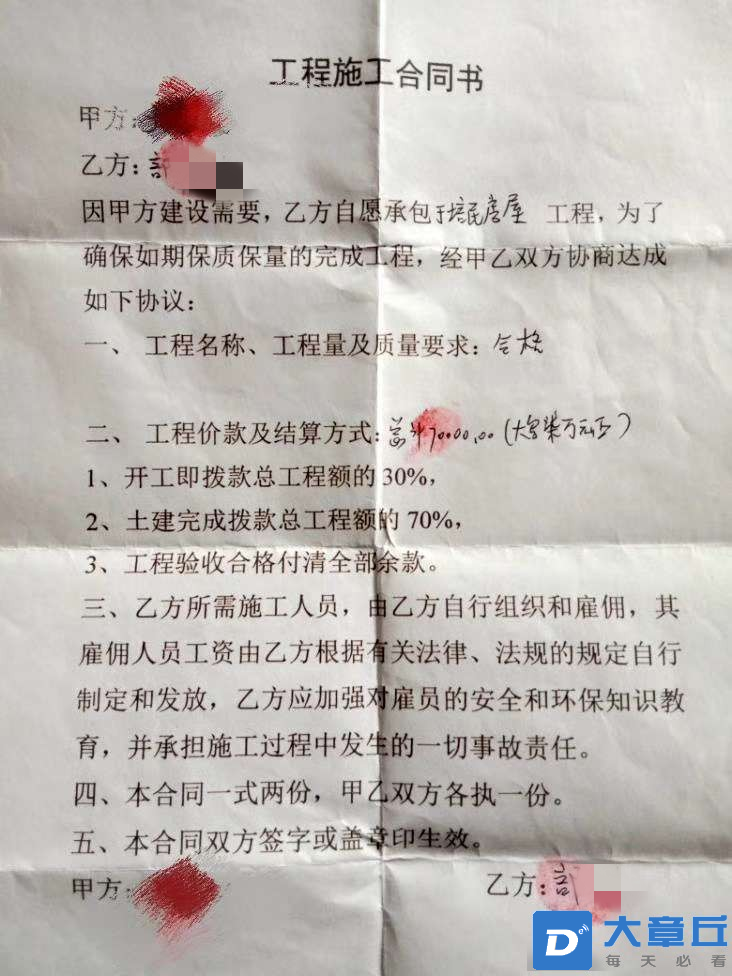 工程施工合同书
甲方:
乙方:
因甲方建设需要,乙方自愿承包于培民房屋 工程,为了
确保如期保质保量的完成工程,经甲乙双方协商达成
如下协议:
一、 工程名称、工程量及质量要求:合格
二、 工程价款及结算方式:总计70000.00(大写柒万元正)
1、开工即拨款总工程额的30%,
2、土建完成拨款总工程额的70%,
3、工程验收合格付清全部余款。
三、乙方所需施工人员,由乙方自行组织和雇佣,其
雇佣人员工资由乙方根据有关法律、法规的规定自行
制定和发放,乙方应加强对雇员的安全和环保知识教
育,并承担施工过程中发生的一切事故责任。
四、本合同一式两份,甲乙双方各执一份。
五、本合同双方签字或盖章印生效。
甲方: 乙方:
D 大章丘
每天必看